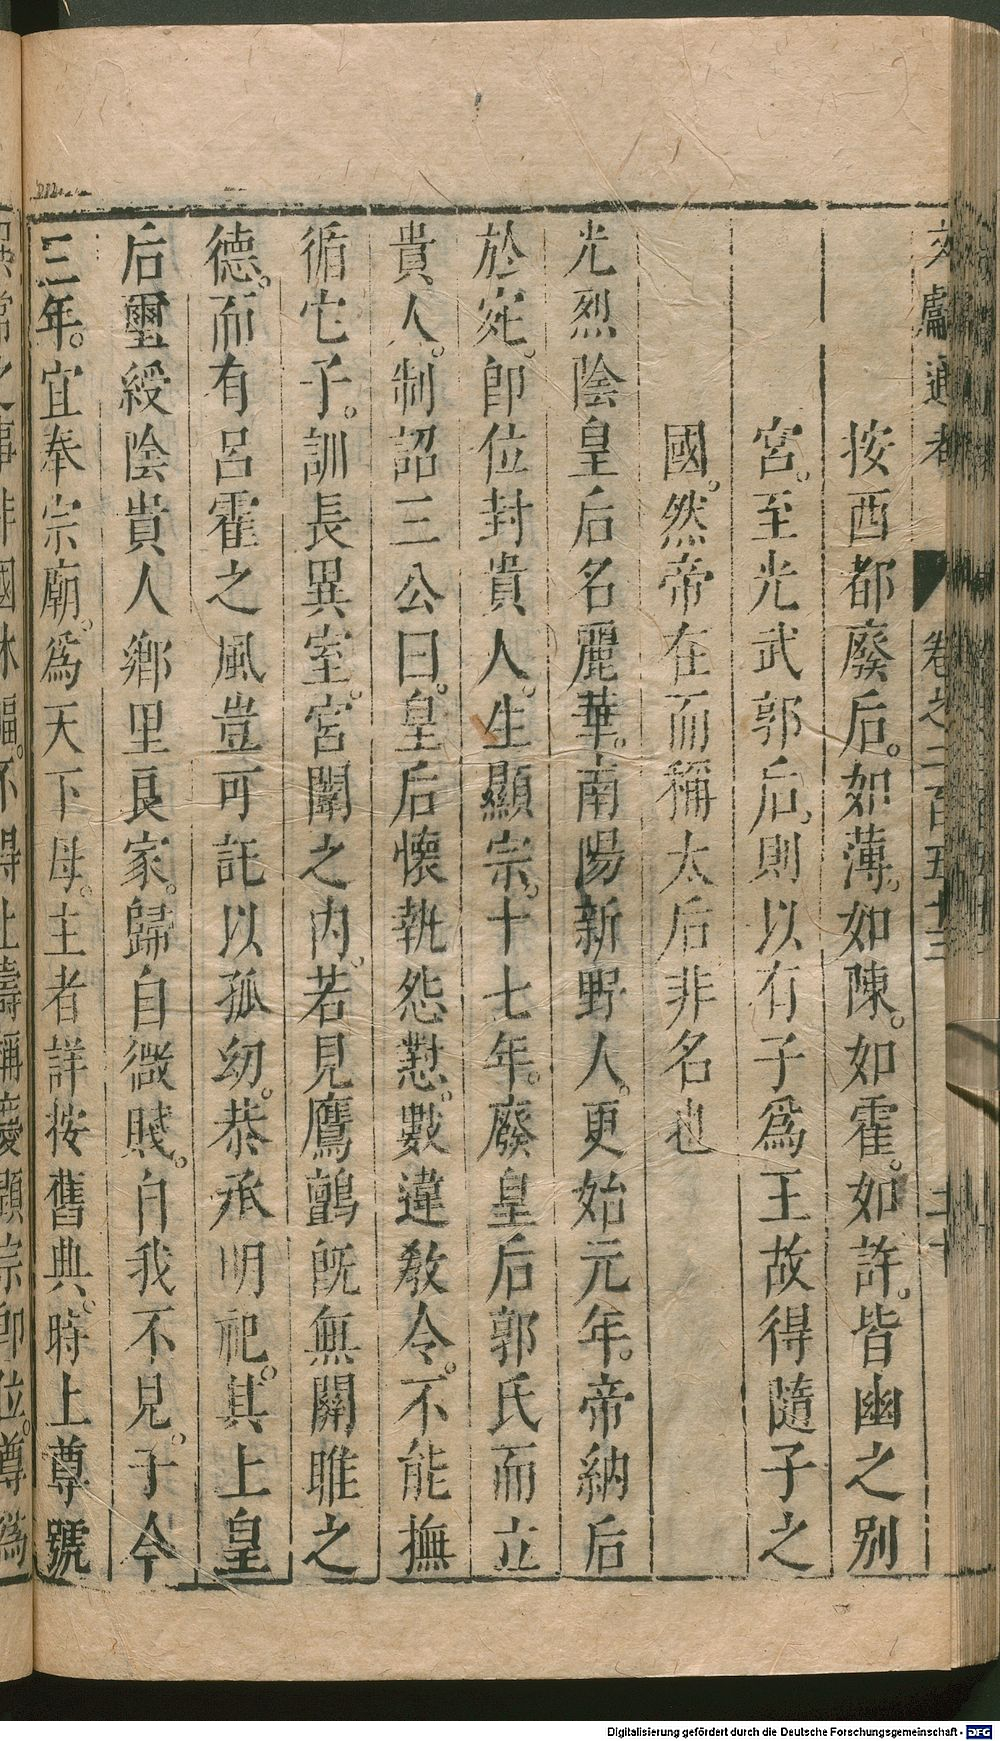 文獻通考 卷之二百五十三 二十
按西都廢后。如薄。如陳。如霍。如許。皆幽之別
宮。至光武郭后。則以有子爲王故得隨子之
國。然帝在而稱太后非名也
光烈陰皇后名麗華。南陽新野人。更始元年。帝納后
於宛。卽位封貴人。生顯宗。十七年。廢皇后郭氏而立
貴人。制詔三公曰。皇后懷執怨懟。數違敎令。不能撫
循它子。訓長異室。宮闈之內。若見鷹鸇旣無關雎之
德。而有呂霍之風豈可託以孤幼。恭承明祀。其上皇
后璽綬陰貴人鄉里良家。歸自微賤。自我不見。于今
三年。宜奉宗廟。爲天下母。主者詳按舊典。時上尊號
常之事非國休福。不得上壽稱慶顯宗卽位。尊爲
Digitalisierung gefördert durch die Deutsche Forschungsgemeinschaft - DFG